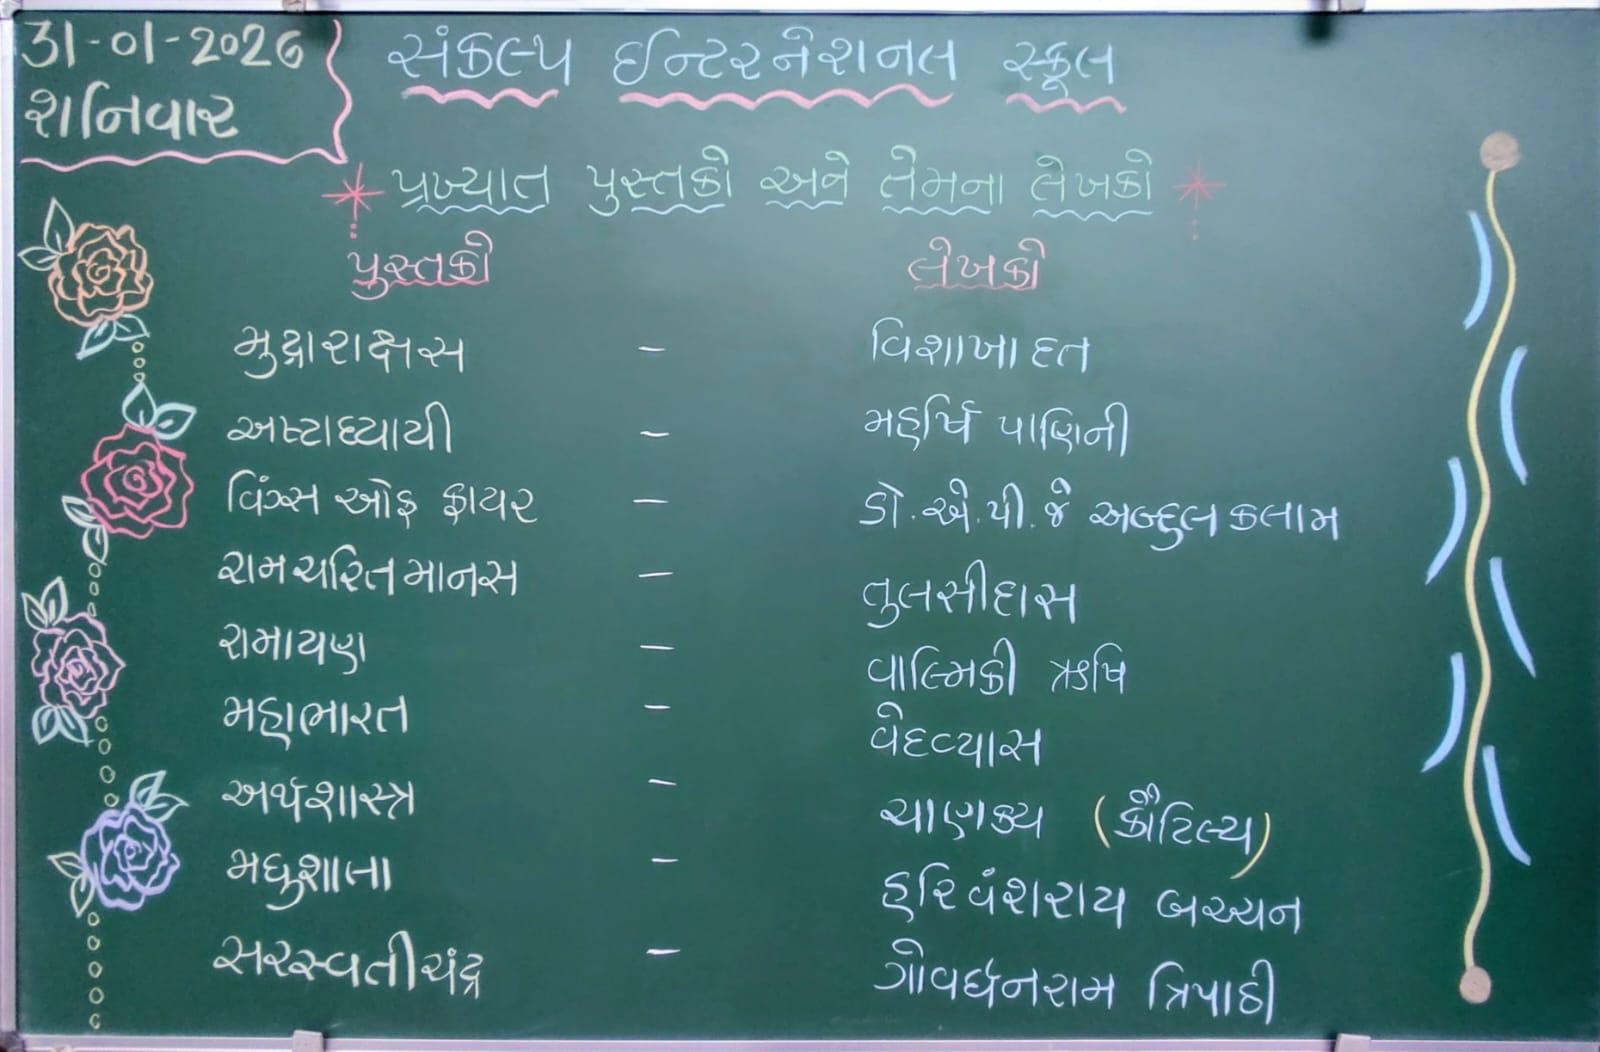 31-01-2026
શનિવાર
સંકલ્પ ઈન્ટરનેશનલ સ્કૂલ
પ્રખ્યાત પુસ્તકો અને તેમના લેખકો
પુસ્તકો લેખકો
મુદ્રારાક્ષસ - વિશાખાદત
અષ્ટાધ્યાયી - મહર્ષિ પાણિની
વિંગ્સ ઓફ ફાયર - ડો. એ. પી. જે અબ્દુલ કલામ
રામચરિતમાનસ - તુલસીદાસ
રામાયણ - વાલ્મિકી ઋષિ
મહાભારત - વેદવ્યાસ
અર્થશાસ્ત્ર - ચાણક્ય (કૌટિલ્ય)
મધુશાલા - હરિવંશરાય બચ્ચન
સરસ્વતીચંદ્ર - ગોવર્ધનરામ ત્રિપાઠી